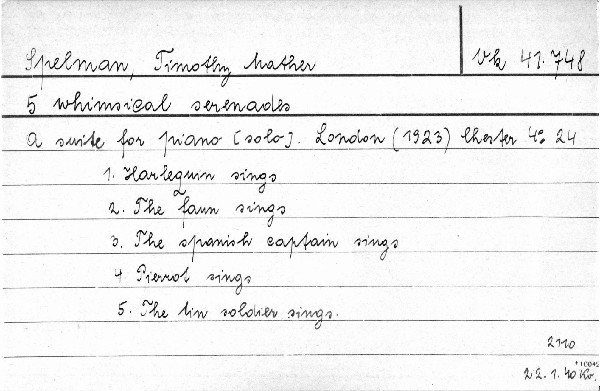 Spelman, Timothy Mather Vk 41.748
5 whimsical serenades
A suite for piano [solo]. London (1923) Chester 4° 24
1. Harlequin sings
2. The faun sings
3. The spanish captain sings
4 Pierrot sings
5. The tin soldier sings.
2110
22.1.40 Kv.